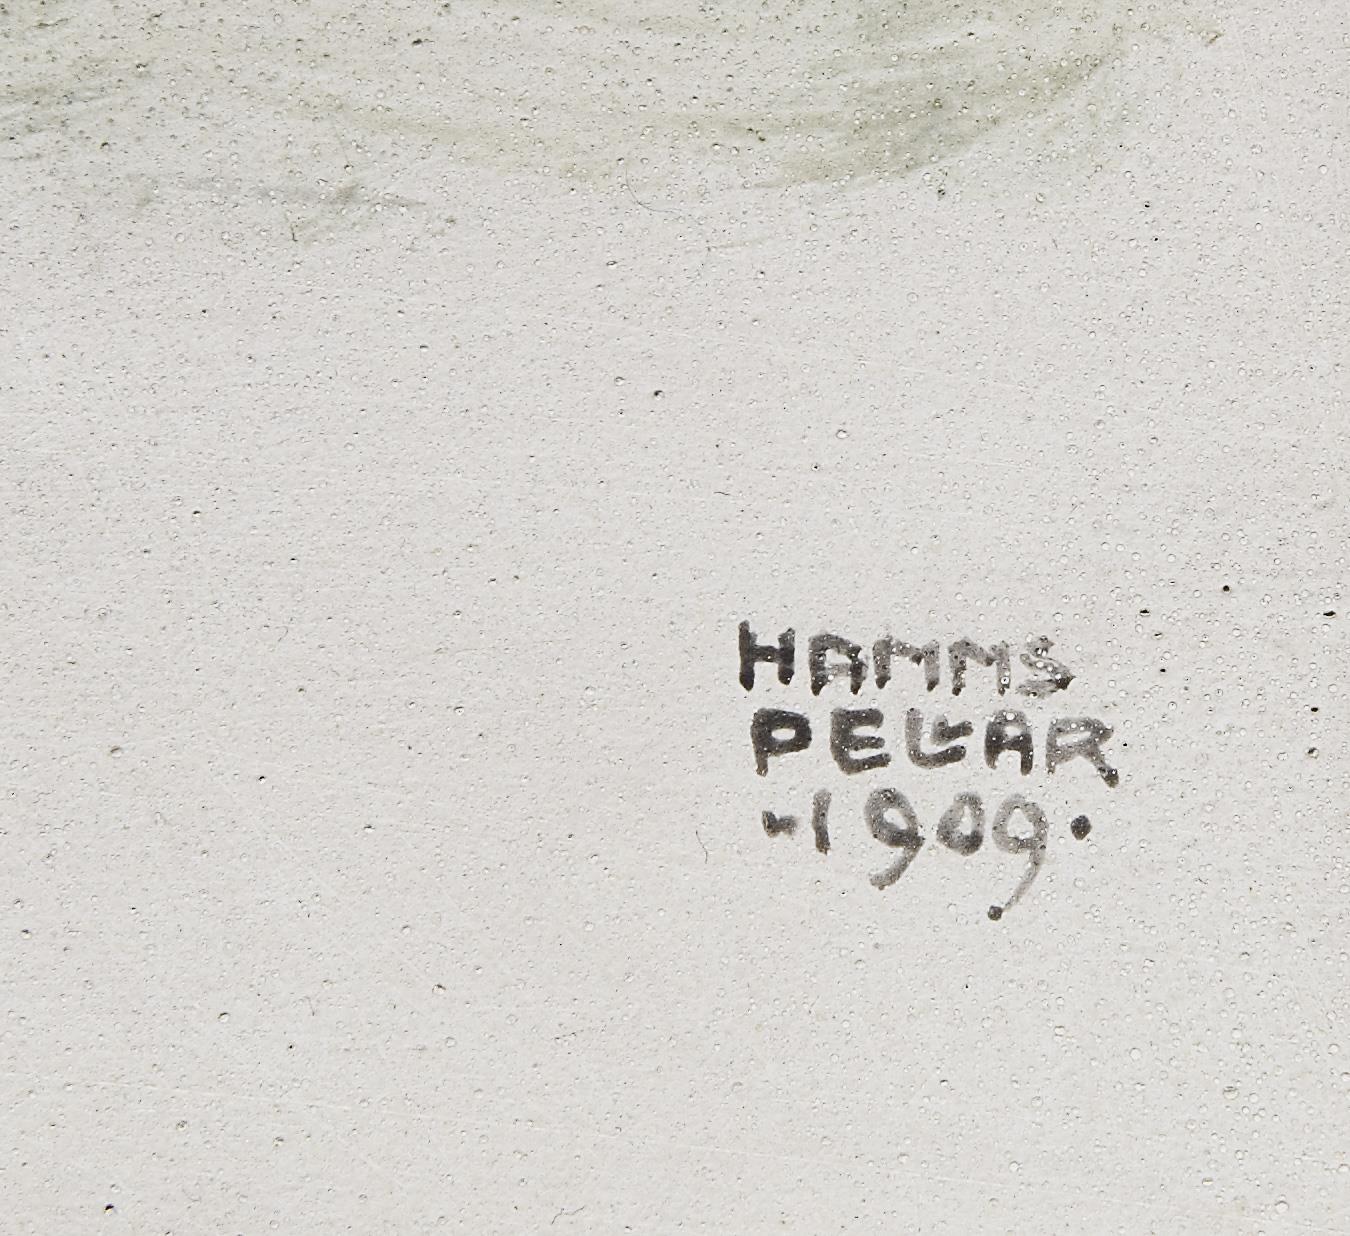 HAMMS
PELLAR
·1909·